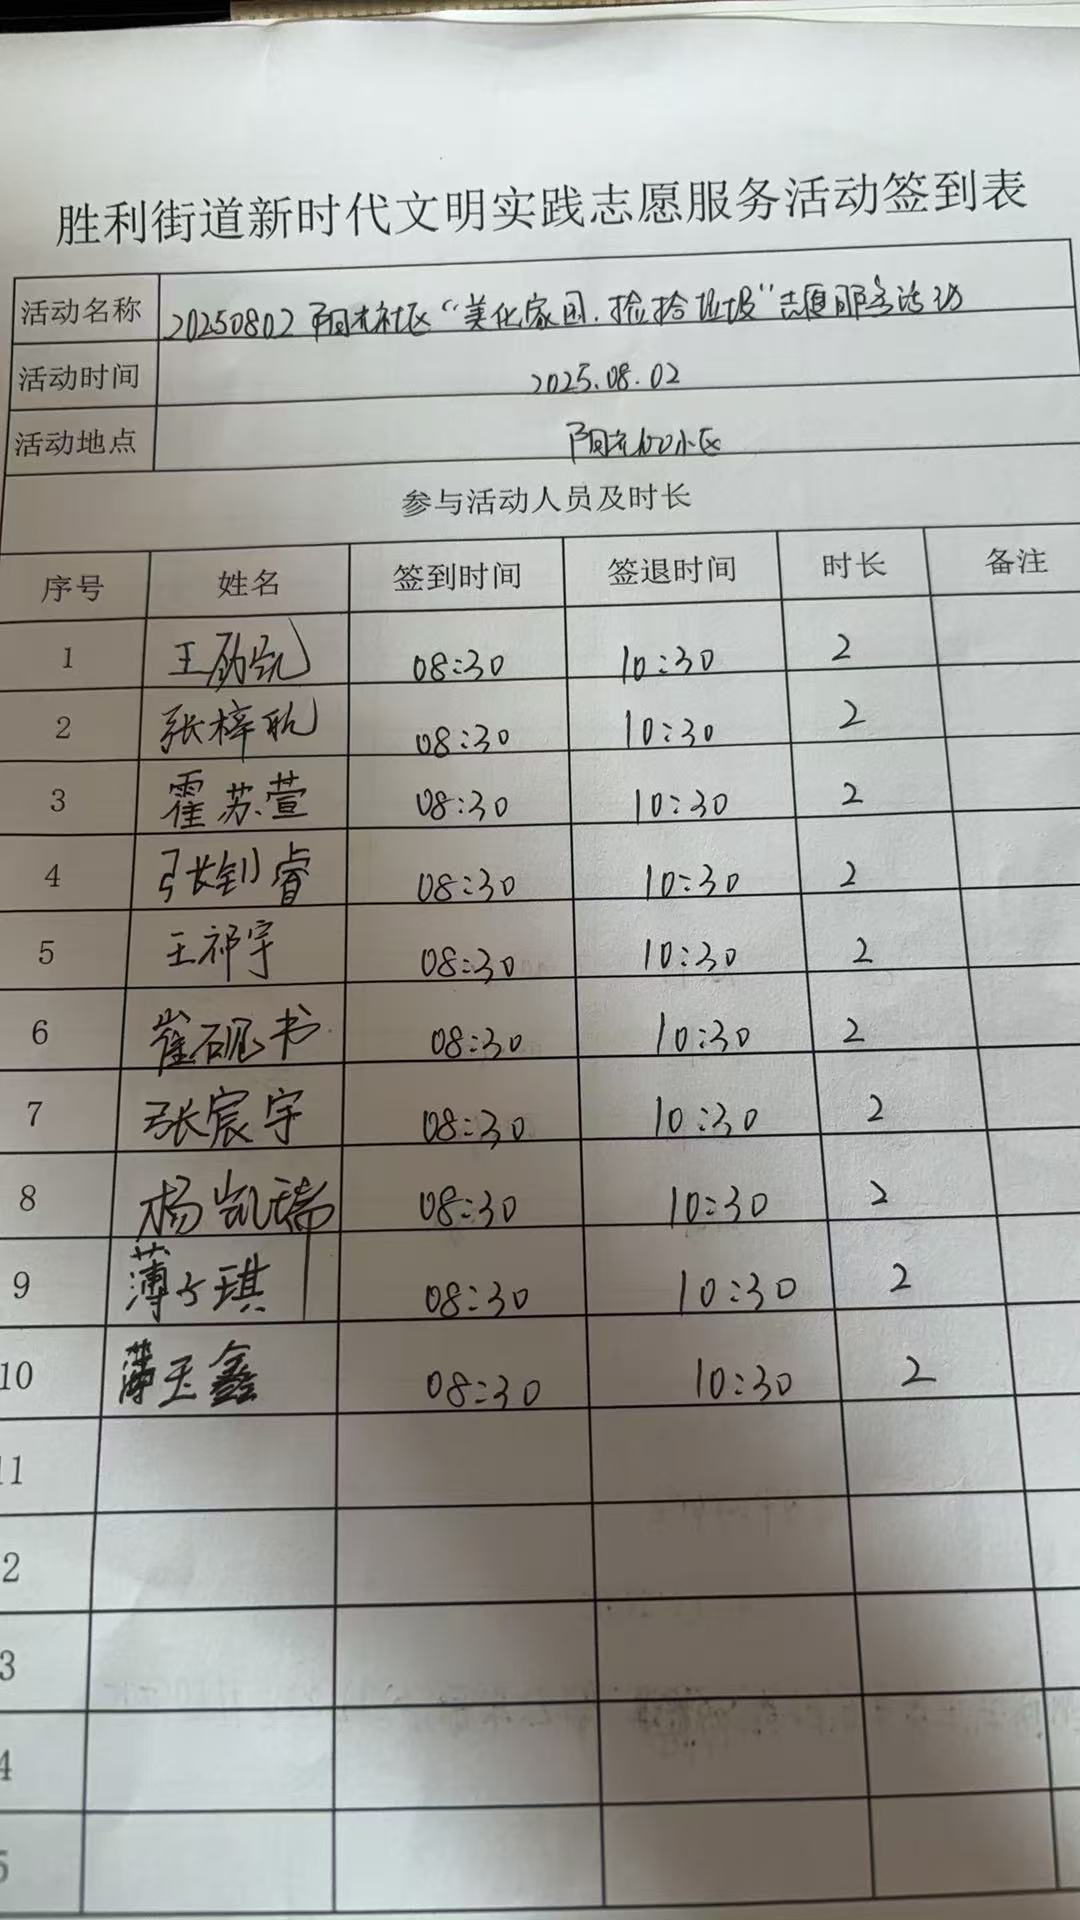 胜利街道新时代文明实践志愿服务活动签到表
活动名称 20250802阳光社区“美化家园.捡拾垃圾”志愿服务活动
活动时间 2025.08.02
活动地点 阳光100小区
参与活动人员及时长
序号 姓名 签到时间 签退时间 时长 备注
1 王勋凯 08:30 10:30 2
2 张梓航 08:30 10:30 2
3 霍苏萱 08:30 10:30 2
4 张钊睿 08:30 10:30 2
5 王祁宇 08:30 10:30 2
6 崔砚书 08:30 10:30 2
7 张宸宇 08:30 10:30 2
8 杨凯瑞 08:30 10:30 2
9 薄 琪 08:30 10:30 2
10 薄玉鑫 08:30 10:30 2
11
2
3
4
5